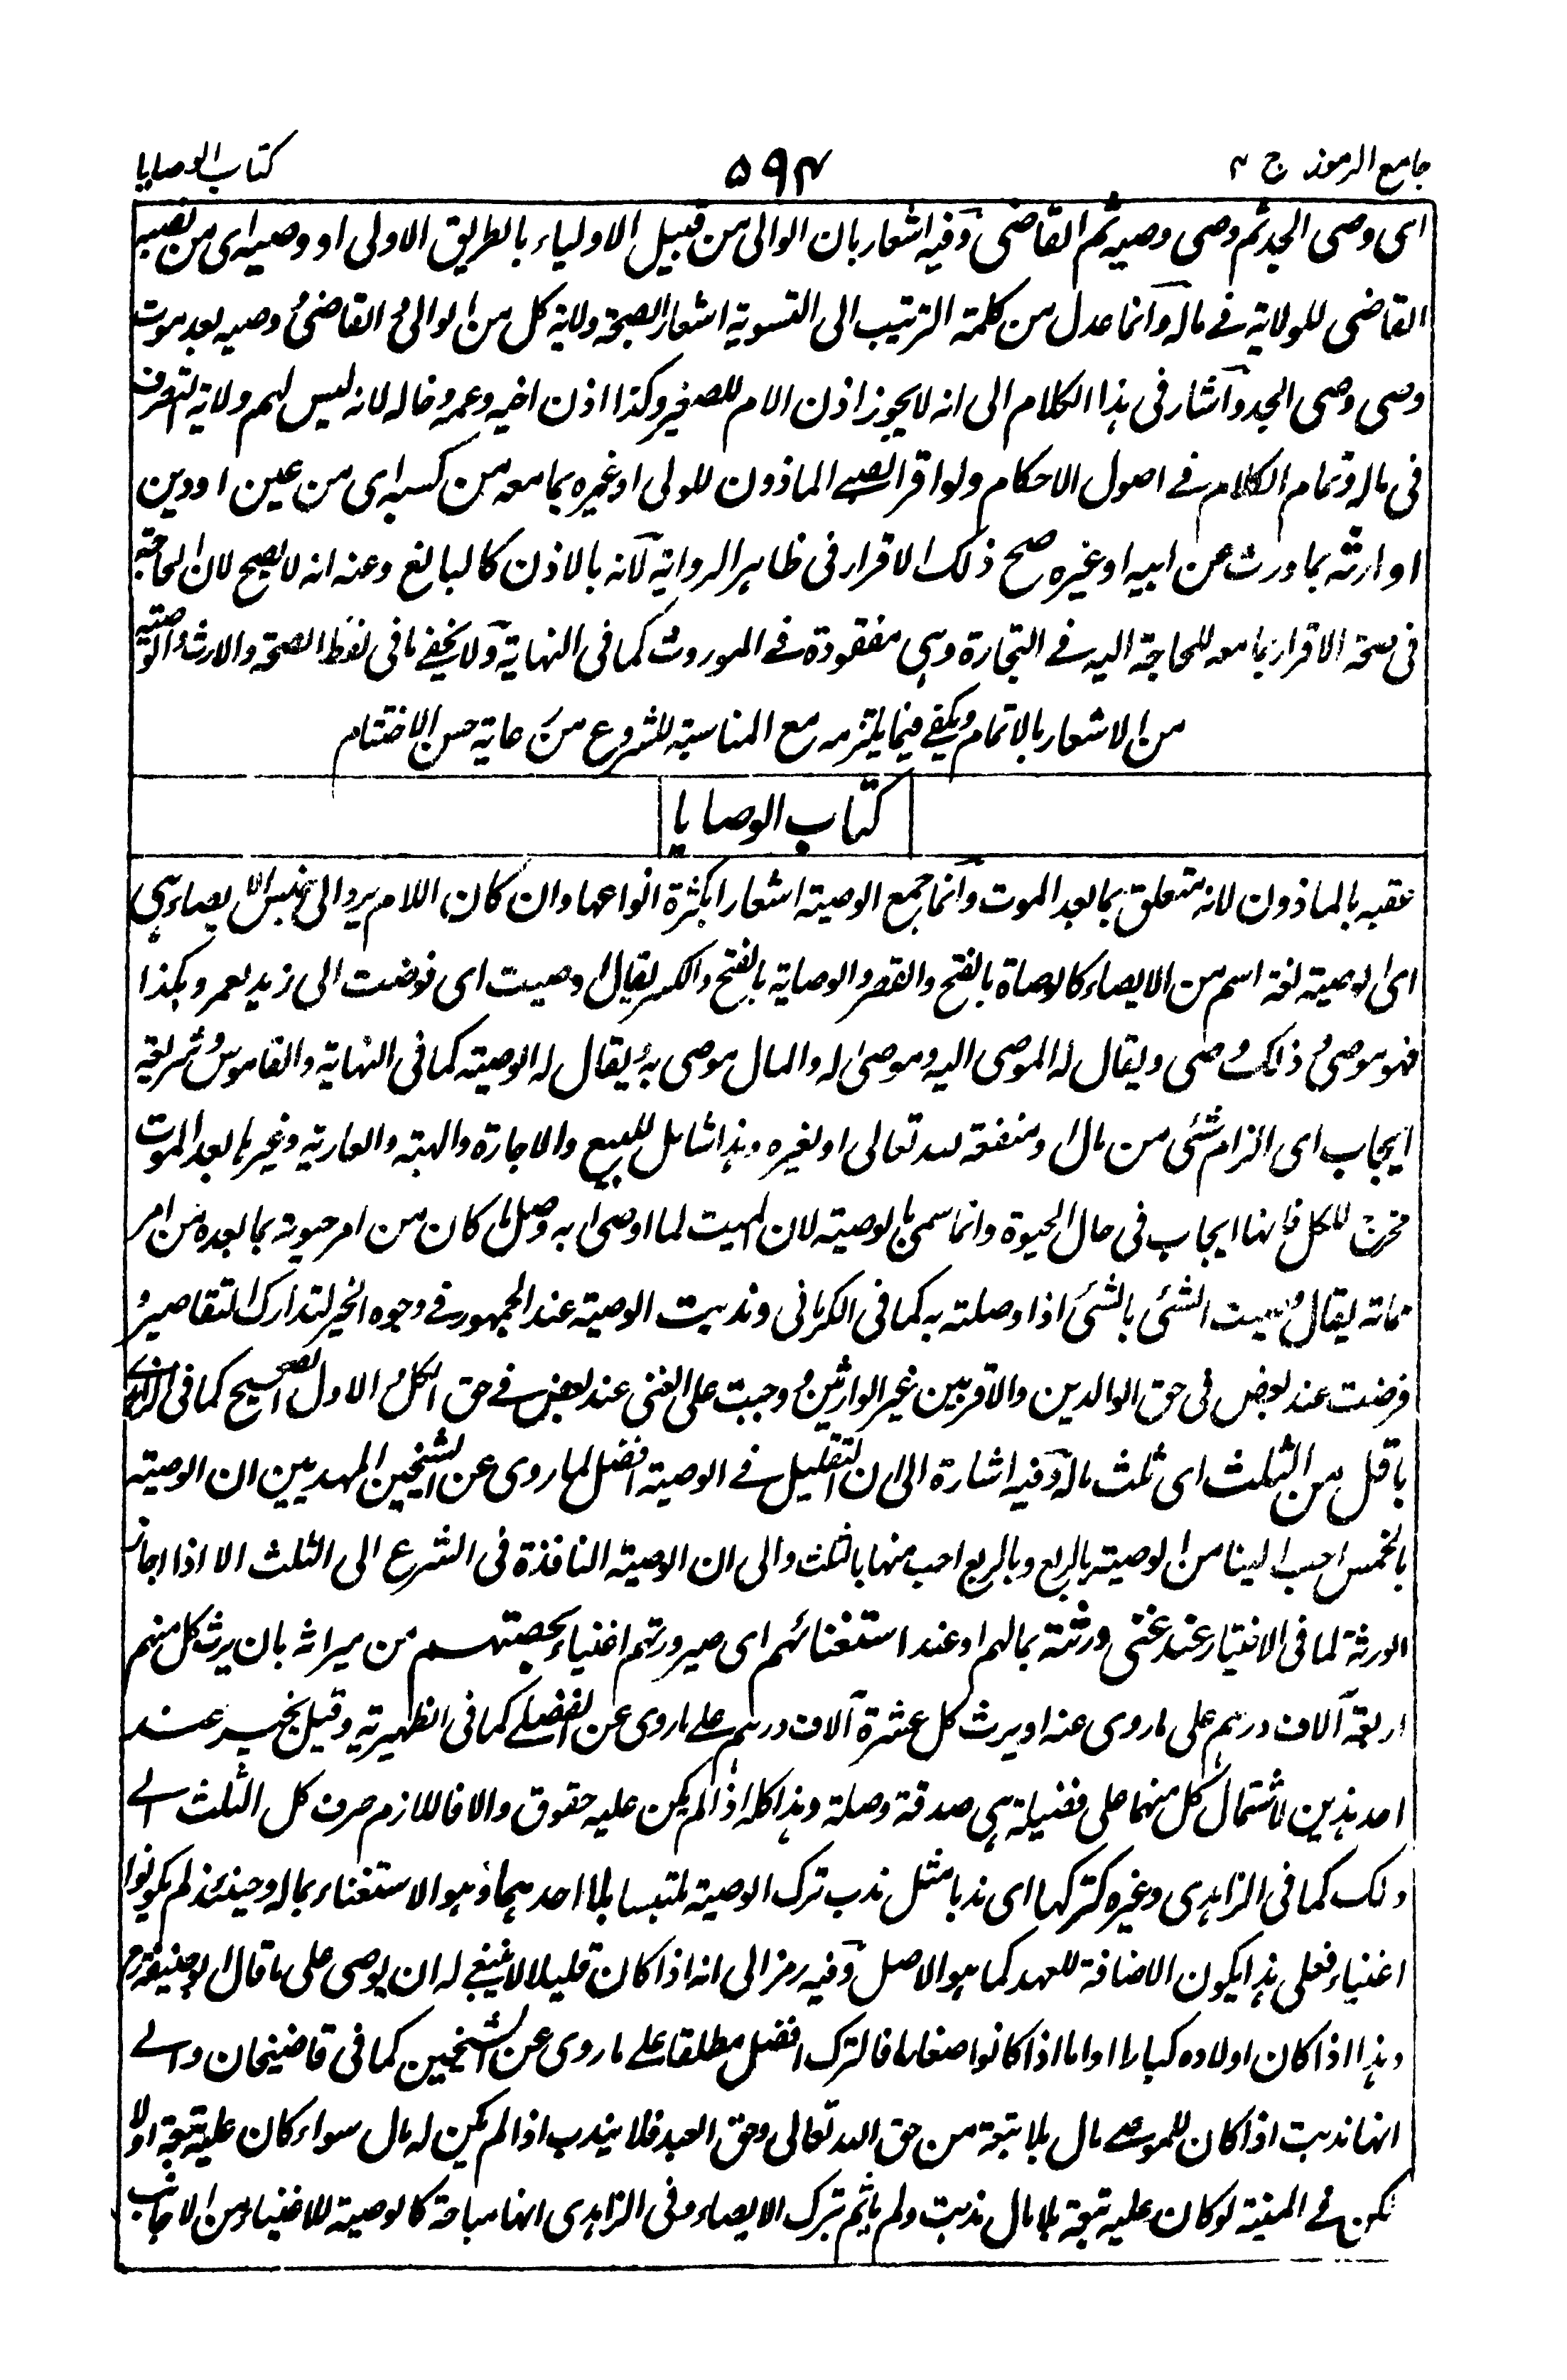 جامع الرموز ج ۴
۵۹۴
كتاب الوصايا
اى وصى الجد ثم وصى وصيه ثم القاضى وفيه اشعار بان الوالى من قبيل الاولياء بالطريق الاولى او وصيه اى من نصبه
القاضى للولاية فے ماله وانما عدل من كلمة الترتيب الى التسوية اشعارا لصحة ولاية كل من الوالى و القاضى و وصيه بعد موت
وصى وصى الجد واشار فى هذا الكلام الى انه لا يجوز اذن الام للصغير وكذا اذن اخيه وعمه وخاله لانه ليس لهم ولاية التصرف
فى ماله وتمام الكلام فے اصول الاحكام ولو اقر الصبے الماذون للولى او غيره بما معه من كسبه اى من عين او دين
او ارثه بما ورث من ابيه او غيره صح ذلك الاقرار فى ظاهر الرواية لانه بالاذن كالبالغ وعنه انه لا يصح لان الحاجة
فى صحة الاقرار بما معه للحاجة اليه فے التجارة وهى مفقودة فے الموروث كما فى النهاية ولا يخفے ما فى لفظ الصحة والارث و الوصية
من الاشعار بالاتمام ويكفے فيما يلتزمه مع المناسبة للشروع من رعاية حسن الاختتام
كتاب الوصايا
عقبه بالماذون لانه متعلق بما بعد الموت وانما جمع الوصية اشعارا بكثرة انواعها وان كان اللام يرد الى جنس الايصاء هى
اى الوصية لغة اسم من الايصاء كالوصاة بالفتح والقصر والوصاية بالفتح والكسر يقال اوصيت اى فوضت الى زيد لعمرو بكذا
فهو موصى و ذلك وصى ويقال له الموصى اليه وموصى له والمال موصى به و يقال له الوصية كما فى النهاية والقاموس و شريعة
ايجاب اى الزام شئى من مال او منفعة لله تعالى او لغيره وهذا شامل للبيع والاجارة والهبة والعارية وغيرها بعد الموت
مخرج للكل فانها ايجاب فى حال الحيوة وانما سمى بالوصية لان الميت لما اوصى به وصل ما كان من امر حيوته بما بعده من امر
مماته يقال وصيت الشئى بالشئى اذا وصلته به كما فى الكرمانى وندبت الوصية عند الجمهور فے وجوه الخير لتدارك التقاصير و
فرضت عند بعض فى حق الوالدين والاقربين غير الوارثين و وجبت على الغنى عند بعض فے حق الكل و الاول الصحيح كما فى
باقل من الثلث اى ثلث ماله وفيه اشارة الى ان التقليل فے الوصية افضل لما روى عن الشيخين المهديين ان الوصية
بالخمس احب الينا من الوصية بالربع وبالربع احب منها بالثلث والى ان الوصية النافذة فى الشرع الى الثلث الا اذا اجاز
الورثة لما فى الاختيار عند غنى ورثته بمالهم او عند استغنائهم اى صيرورتهم اغنياء بحصتهم من ميراثه بان يرث كل منهم
اربعة آلاف درهم على ما روى عنه او يرث كل عشرة آلاف درهم علے ما روى عن الفضلے كما فى الظهيرية وقيل يخير عند
احد هذين لاشتمال كل منهما على فضيلة هى صدقة وصلة وهذا كله اذا لم يكن عليه حقوق والا فاللازم صرف كل الثلث الے
ذلك كما فى الزاهدى وغيره كتركها اى ندبا مثل ندب ترك الوصية ملتبسا بلا احدهما وهو الاستغناء بماله وحينئذ لم يكونوا
اغنياء فعلى هذا يكون الاضافة للعهد كما هو الاصل وفيه رمز الى انه اذا كان قليلا لا ينبغے له ان يوصى على ما قال ابو حنيفة رح
وهذا اذا كان اولاده كبارا واما اذا كانوا صغارا فالترك افضل مطلقا علے ما روى عن الشيخين كما فى قاضيخان والے
انها ندبت اذا كان للموصے مال بلا تبعة من حق الله تعالى وحق العبد فلا يندب اذا لم يكن له مال سواء كان عليه تبعة او لا
لكن فے المنية لو كان عليه تبعة بلا مال ندبت ولم ياثم بترك الايصاء وفى الزاهدى انها مباحة كالوصية للاغنياء من الاجانب